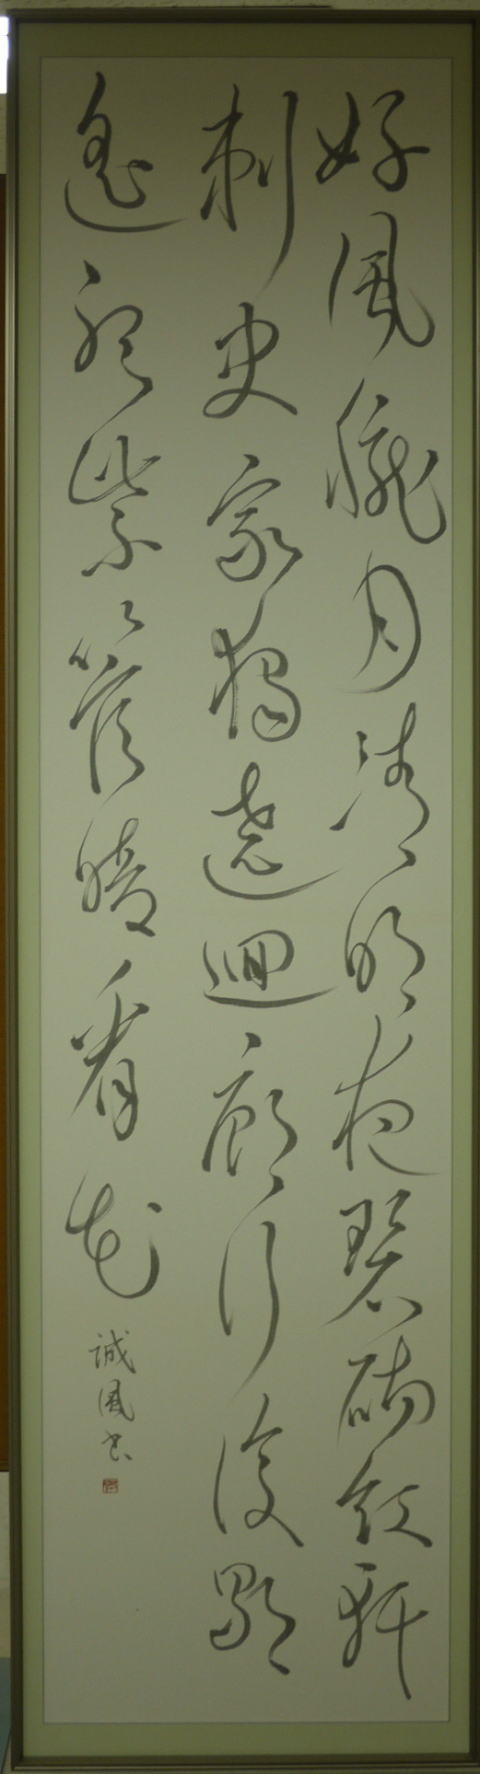 好風朧月清明夜碧砌紅軒
刺史家獨遶迴廊行復歇
遙聽紫管暗看花
誠風書